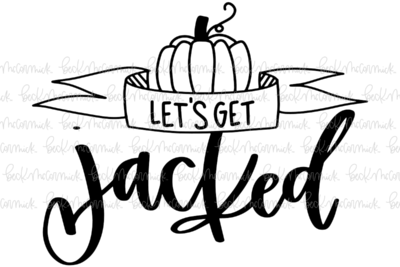 LET'S GET
jacked